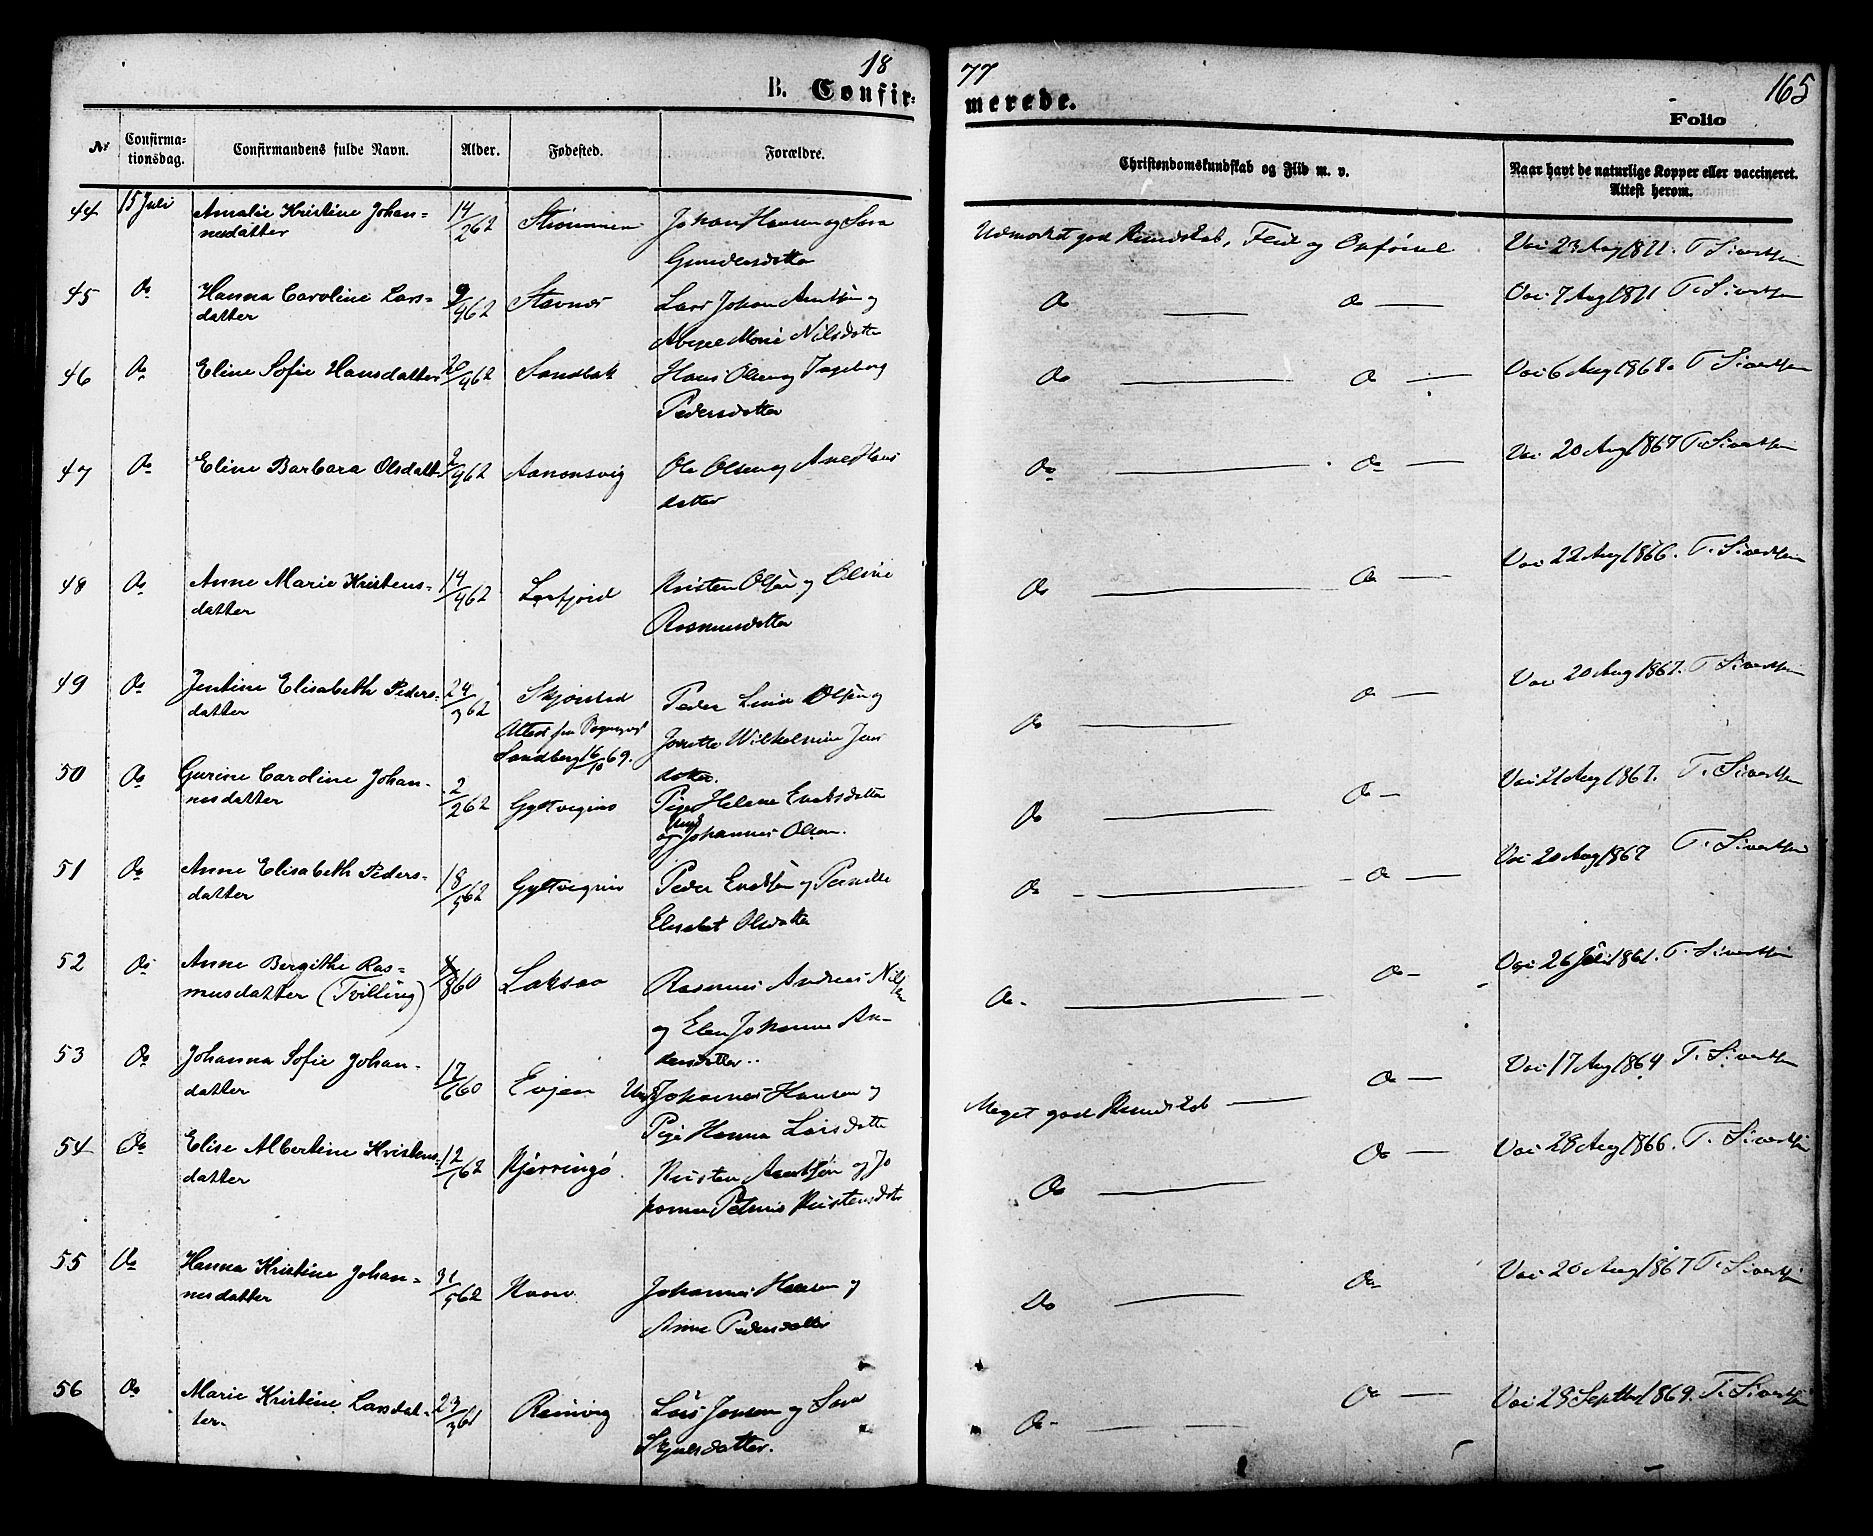 18
77
165
B. Confir-
merede.
Folio
№
Confirma-
tionsdag.
Confirmandens fulde Navn.
Alder.
Fødested.
Forældre.
Christendomskundskab og Flid m. v.
Naar havt de naturlige Kopper eller vaccineret.
Attest herom.
44 15 Juli Amalie Kristine Johan- 14/2 62 Strømmen Johan Hansen og Sara
nesdatter
Gundersdatter
Udmærket god Kundskab, Flid og Opførsel
Vac 23 Aug 1871. T. Sivertsen
45 Do Hanna Caroline Lars- 9/4 62 Stavnes Lars Johan Arntsen og
datter
Marie Nilsdatter
Do Do
Vac 7 Aug 1871 T. Sivertsen
46 Do Eline Sofie Hansdatter 20/4 62 Sandbak Hans Olsen og Ingeborg
Pedersdatter
Do Do
Vac 6 Aug 1868. T. Sivertsen
47 Do Eline Barbara Olsdatt 2/4 62 Aanonsvig Ole Olsen og Ane Hans
datter
Do Do
Vac 20 Aug 1867 T. Sivertsen
48 Do Anne Marie Kristens- 14/4 62 Kristen Olsen og Oline
datter
Rasmusdatter
Do Do
Vac 22 Aug 1866. T. Sivertsen
49 Do Jentine Elisabeth Peders- 24/3 62 Skjønsted Peder Olsen og
datter
Attest fra
Sandberg 16/10 69.
Wilhelmine Jens
datter.
Do Do
Vac 20 Aug 1867. T. Sivertsen
50 Do Gurine Caroline Johan- 2/2 62 Gyltvignes Pige Helene Evertsdatter
nesdatter
og Ung Johannes Olsen.
Do Do
Vac 21 Aug 1867. T. Sivertsen
51 Do Anne Elisabeth Peders- 18/5 62 Gyltvignes Peder Evertsen og Pernille
datter
Elisabet Olsdatter
Do Do
Vac 20 Aug 1867 T. Sivertsen
52 Do Anne Bergithe Ras- 4/8 60 Laksaa Rasmus Andreas Nilsen
musdatter (Tvilling)
og Elen Johanna An-
dersdatter.
Do Do
Vac 26 Juli 1861. T. Sivertsen
53 Do Johanna Sofie Johan- 17/6 60 Evjen Ung Johannes Hansen og
datter
Pige Hanna Larsdatter
Meget god Kundskab Do
Vac 17 Aug 1864 T. Sivertsen
54 Do Elise Albertine Kristens- 12/1 62 Kjerringø. Kristen Arntsen og Jo
datter
hanna Petrine Kristensdatr
Do Do
Vac 28 Aug 1866. T. Sivertsen
55 Do Hanna Kristine Johan- 31/5 62 Johannes Hansen og
nesdatter
Anne Pedersdatter
Do Do
Vac 20 Aug 1867 T. Sivertsen
56 Do Marie Kristine Larsdat- 23/3 61 Reinvig Lars Jensen og Sara
ter
Do Do
Vac 28 Septbr 1869. T. Sivertsen